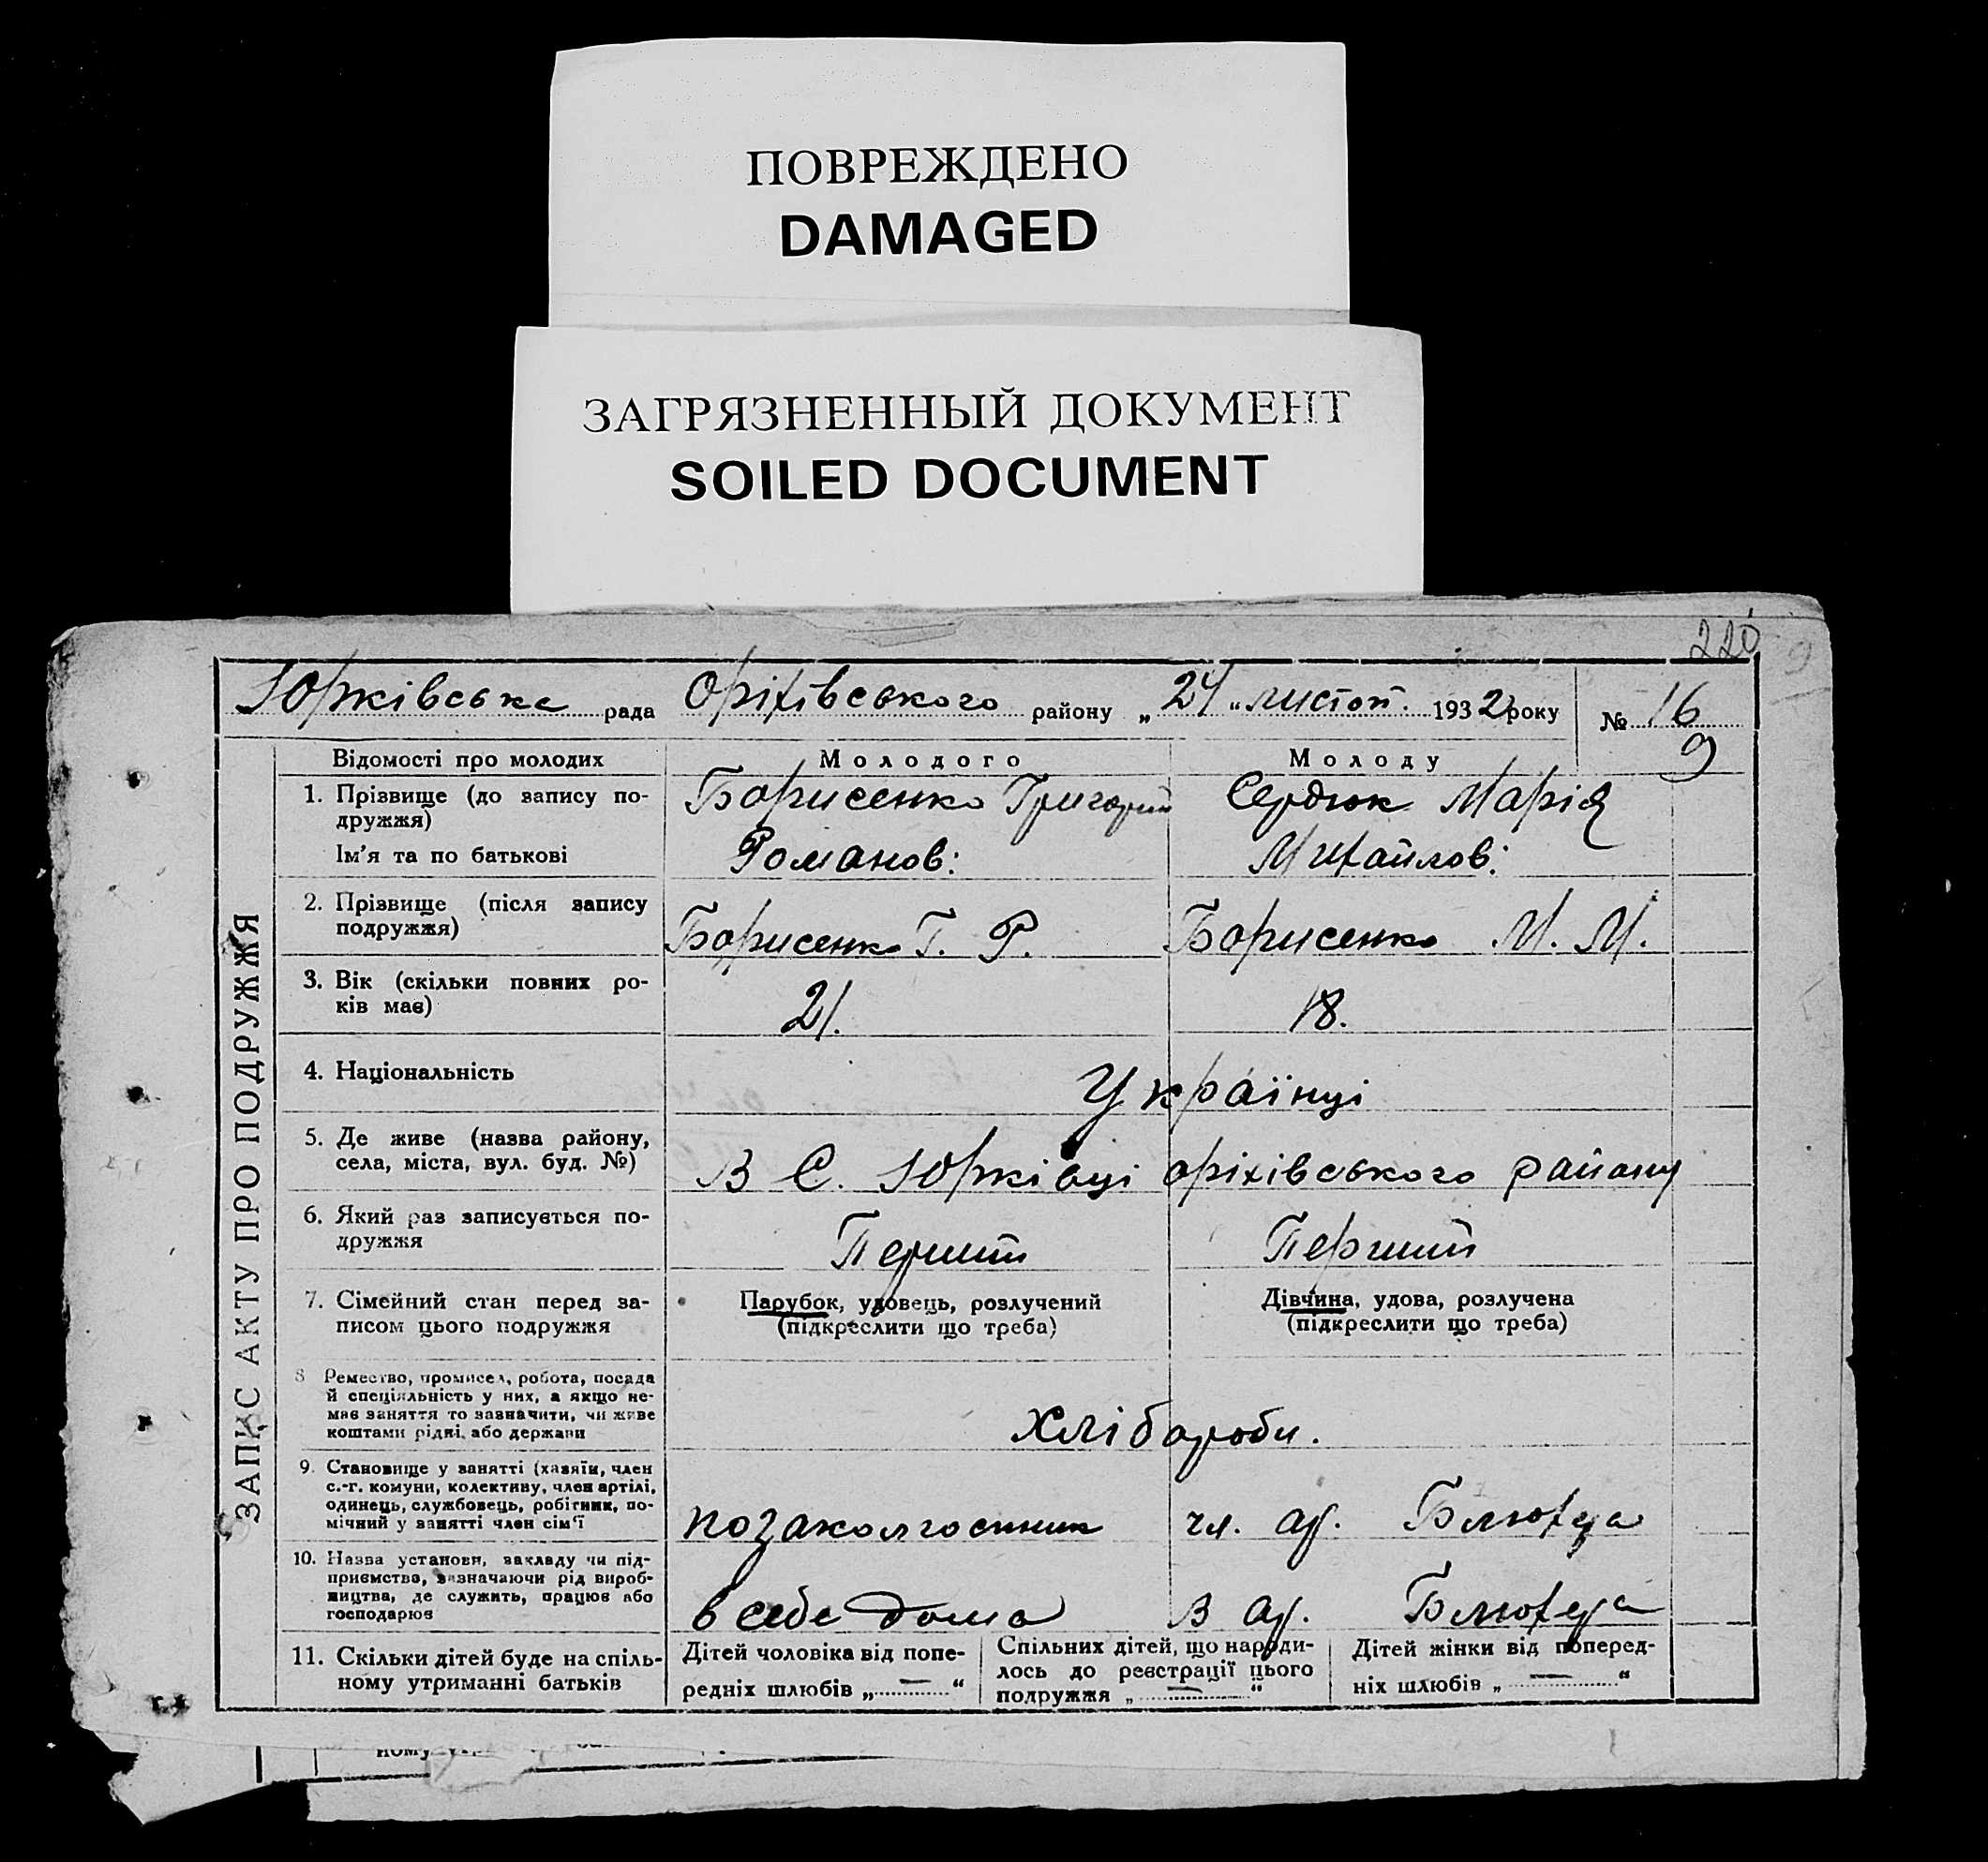 ПОВРЕЖДЕНО
DAMAGED
ЗАГРЯЗНЕННЫЙ ДОКУМЕНТ
SOILED DOCUMENT
220
Юрківська рада Оріхівського району „24“ листоп. 1932 року № 16
9
ЗАПИС АКТУ ПРО ПОДРУЖЖЯ
Відомості про молодих Молодого Молоду
1. Прізвище (до запису по-
дружжя)
Ім'я та по батькові
Борисенко Григорий
Романов:
Сердюк Марія
Михайлов:
2. Прізвище (після запису
подружжя)
Борисенко Г. Р.
Борисенко М. М.
3. Вік (скільки повних ро-
ків має)
21.
18.
4. Національність
Українці
5. Де живе (назва району,
села, міста, вул. буд. №)
В С. Юрківці оріхівського району
6. Який раз записується по-
дружжя
Перший
Перший
7. Сімейний стан перед за-
писом цього подружжя
Парубок, удовець, розлучений
(підкреслити що треба)
Дівчина, удова, розлучена
(підкреслити що треба)
8 Ремество, промисел, робота, посада
й спеціяльність у них, а якщо не-
має заняття то зазначити, чи живе
коштами рідні, або держави
Хлібороби.
9. Становище у занятті (хазяїн, член
с.-г. комуни, колективу, член артілі,
одинець, службовець, робітник, по-
мічний у занятті член сім'ї
позаколгоспник
чл. ар. Блюхера
10. Назва установи, закладу чи під-
приємства, зазначаючи рід вироб-
ництва, де служить, працює або
господарює
в себе дома
В ар. Блюхера
11. Скільки дітей буде на спіль-
ному утриманні батьків
Дітей чоловіка від попе-
редніх шлюбів „—“
Спільних дітей, що народи-
лось до реєстрації цього
подружжя „—“
Дітей жінки від поперед-
ніх шлюбів „—“